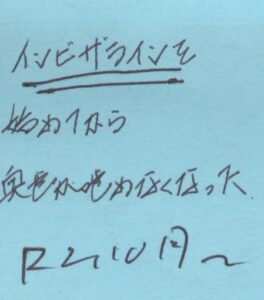 インビザラインを
始めてから
奥歯が噛めなくなった
R2.10月~